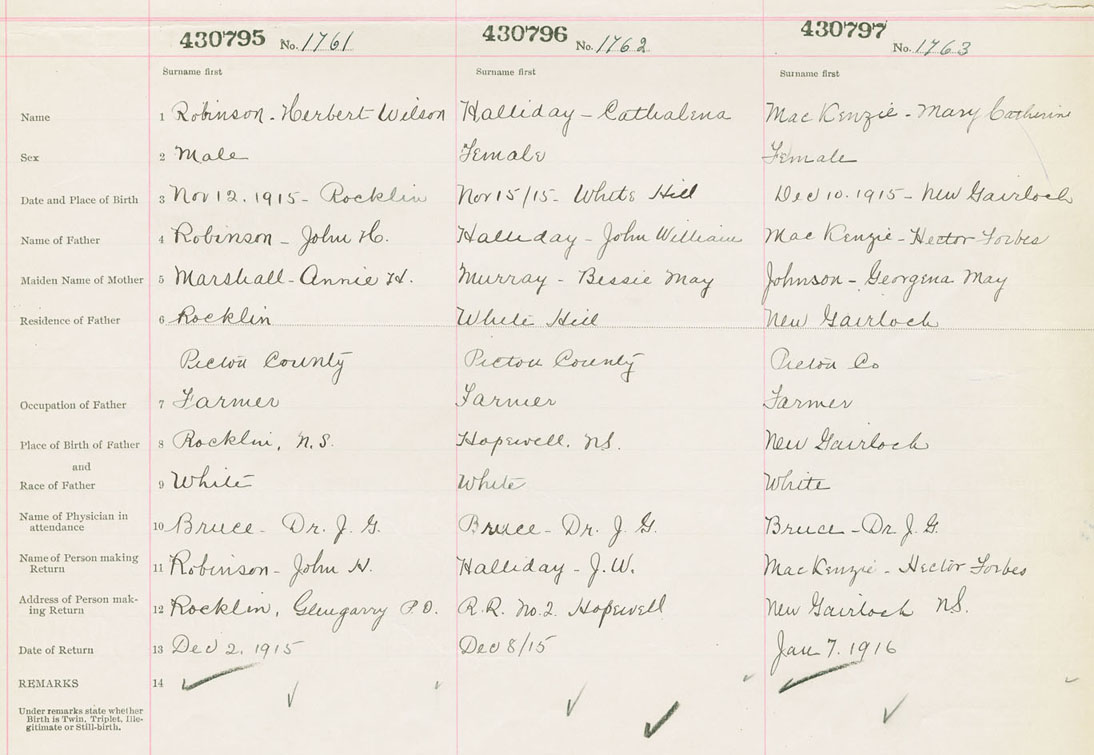 430795 No. 1761 430796 No. 1762 430797 No. 1763
Surname first Surname first Surname first
Name 1 Robinson - Herbert Wilson Halliday - Cathalena MacKenzie - Mary Catherine
Sex 2 Male Female Female
Date and Place of Birth 3 Nov 12. 1915 - Rocklin Nov 15/15 - White Hill Dec 10. 1915 - New Gairloch
Name of Father 4 Robinson - John H. Halliday - John William MacKenzie - Hector Forbes
Maiden Name of Mother 5 Marshall - Annie H. Murray - Bessie May Johnson - Georgena May
Residence of Father 6 Rocklin White Hill New Gairloch
Pictou County Pictou County Pictou Co
Occupation of Father 7 Farmer Farmer Farmer
Place of Birth of Father 8 Rocklin, N.S. Hopewell, NS. New Gairloch
and
Race of Father 9 White White White
Name of Physician in attendance 10 Bruce - Dr. J. G. Bruce - Dr. J. G. Bruce - Dr. J. G.
Name of Person making Return 11 Robinson - John H. Halliday - J. W. MacKenzie - Hector Forbes
Address of Person mak-ing Return 12 Rocklin, Glengarry P.O. R.R. No. 2. Hopewell New Gairloch NS.
Date of Return 13 Dec 2, 1915 Dec 8/15 Jan 7. 1916
REMARKS 14
Under remarks state whether
Birth is Twin, Triplet, Ille-
gitimate or Still-birth.